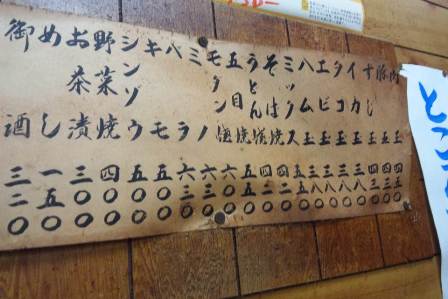 肉玉 五〇〇
豚玉 四三〇
すじ玉 四三〇
イカ玉 三八〇
タコ玉 三八〇
エビ玉 三八〇
ハム玉 三八〇
ミックス 五〇〇
そば焼 四二〇
うどん焼 四二〇
五目焼 五〇〇
モダン焼 六〇〇
ミノ 六三〇
ベラ 六三〇
キモ 五〇〇
シンゾウ 五〇〇
野菜焼 四〇〇
お茶漬 三〇〇
めし 一五〇
御酒 三二〇